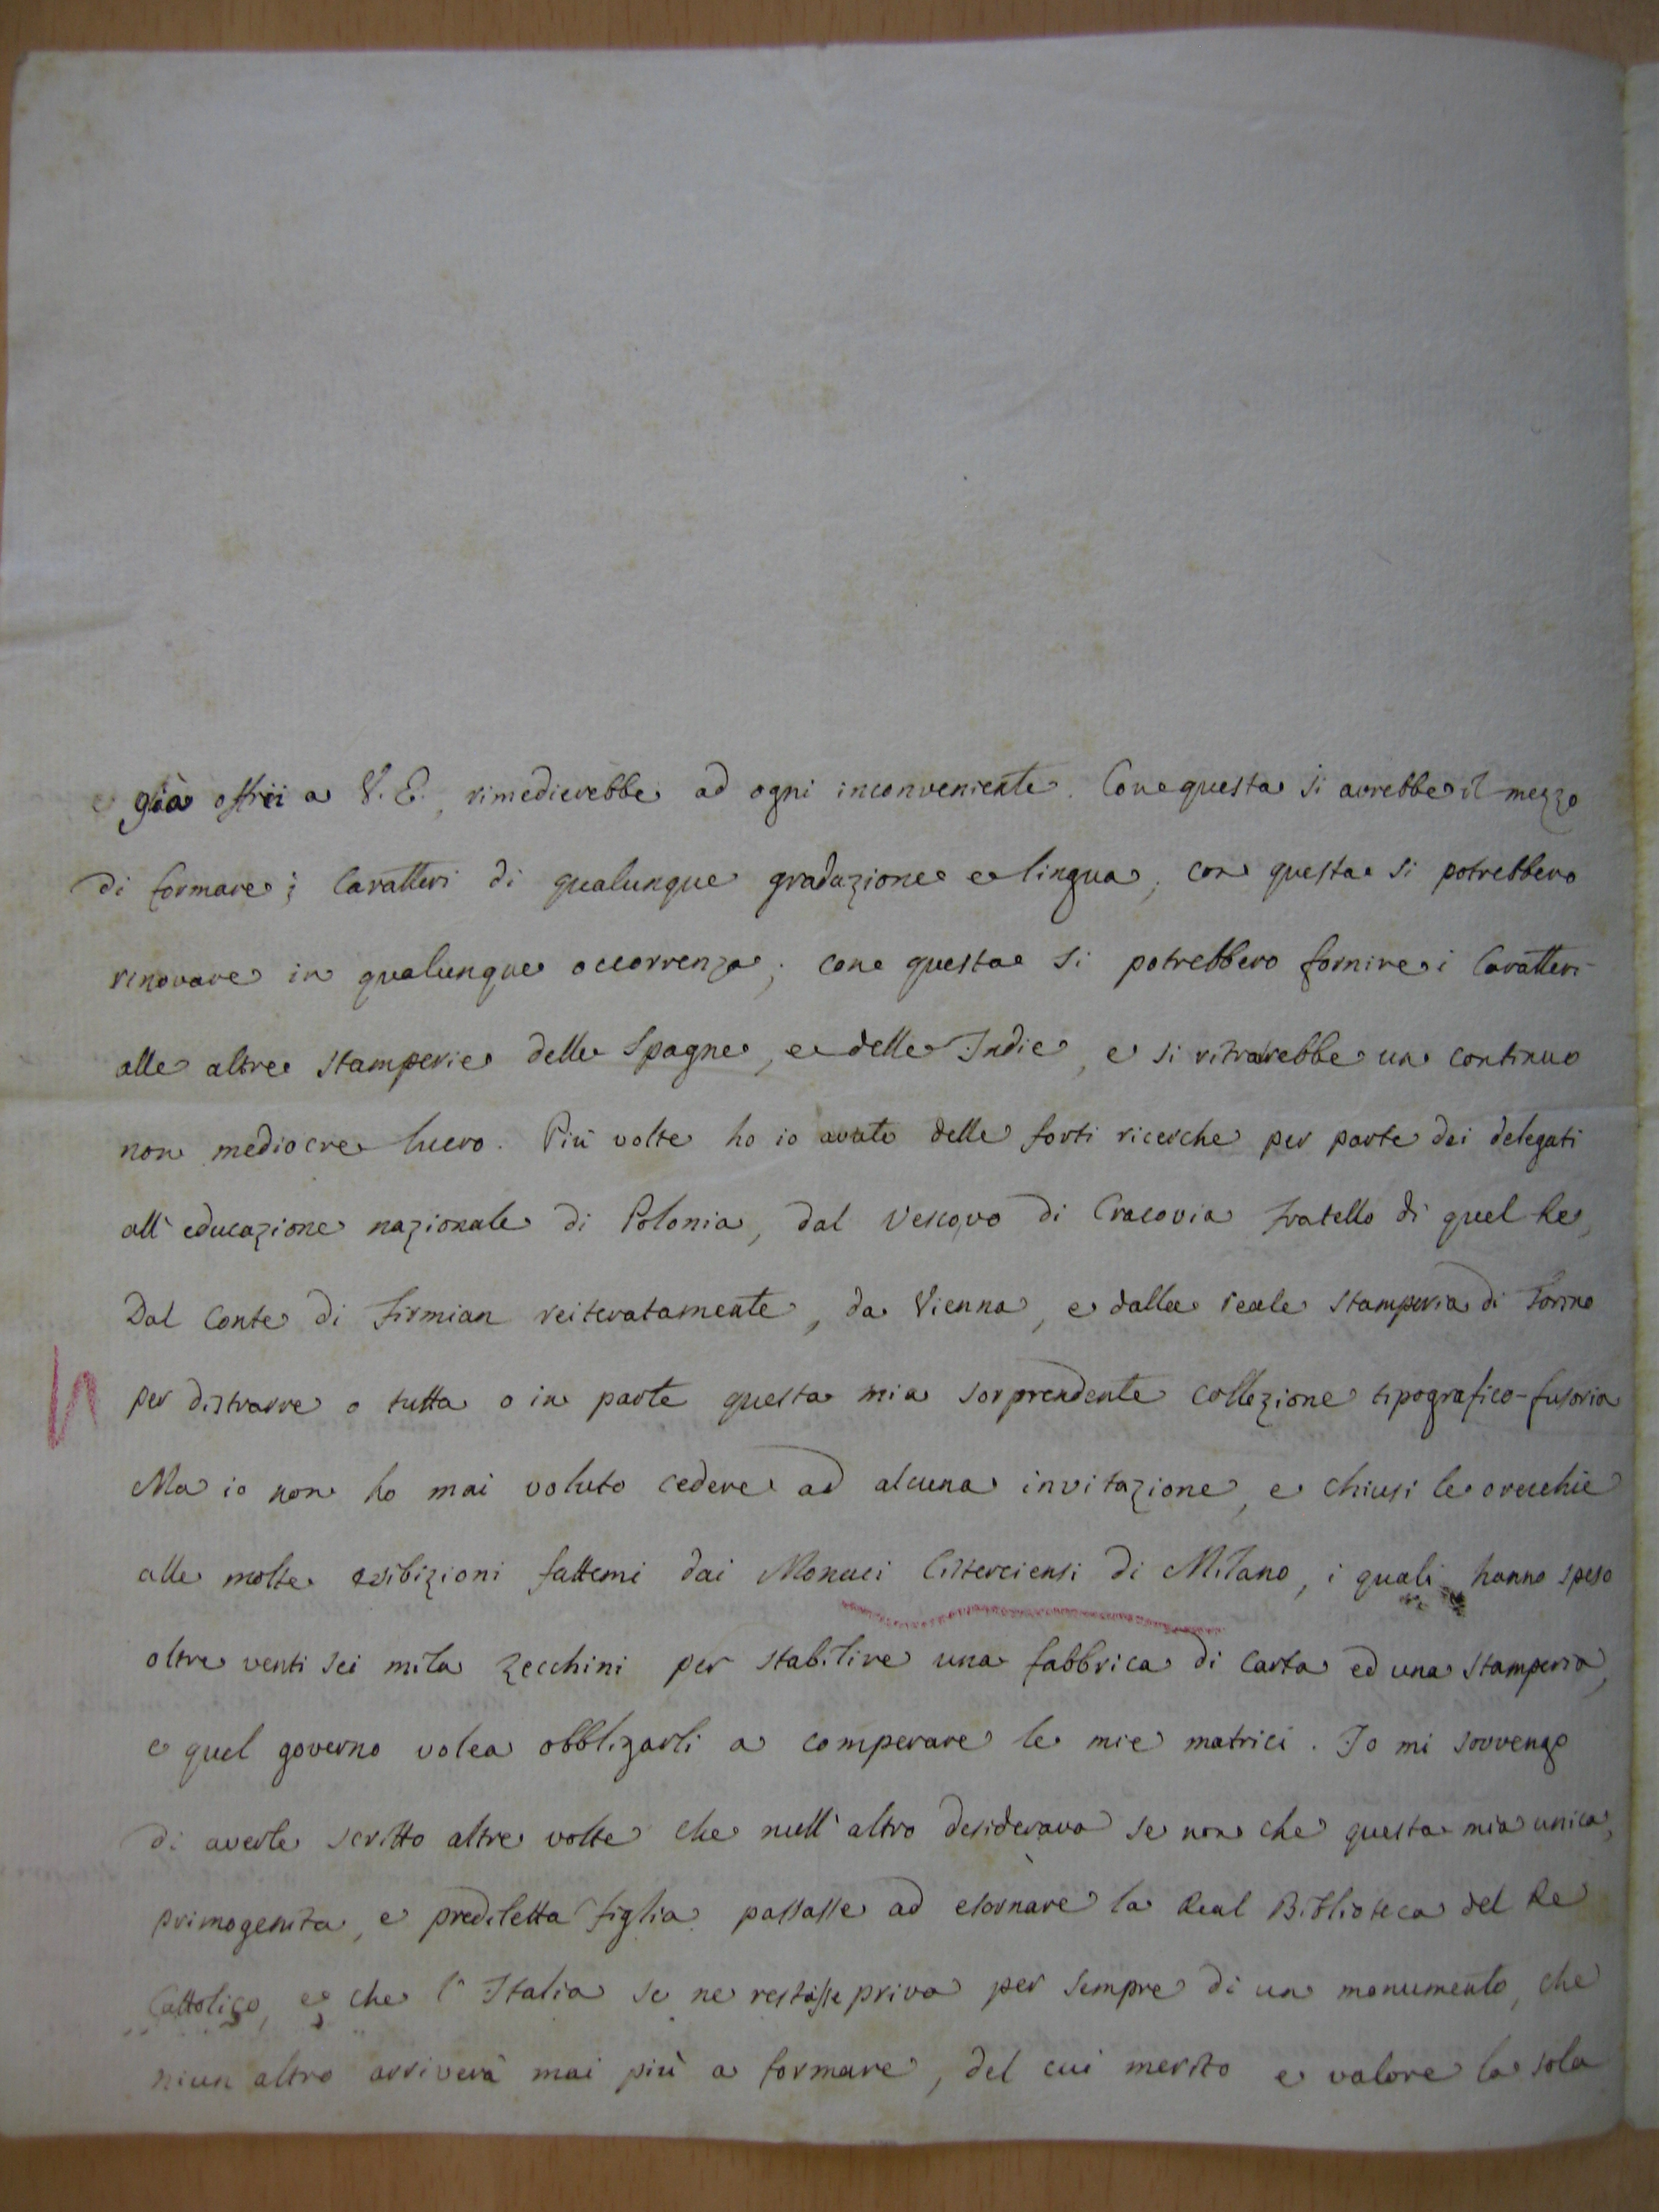 e già offrii a V. E., rimedierebbe ad ogni inconveniente. Con questa si avrebbe il mezzo
di formare i Caratteri di qualunque graduazione e lingua; con questa si potrebbero
rinovare in qualunque occorrenza; con questa si potrebbero fornire i Caratteri
alle altre stamperie delle Spagne, e delle Indie, e si ritrarebbe un continuo
non mediocre lucro. Più volte ho io avute delle forti ricerche per parte dei delegati
all'educazione nazionale di Polonia, dal Vescovo di Cracovia Fratello di quel Re,
Dal Conte di Firmian reiteratamente, da Vienna, e dalla reale stamperia di Torino
per distrarre o tutta o in parte questa mia sorprendente collezione tipografico-fusoria
Ma io non ho mai voluto cedere ad alcuna invitazione, e chiusi le orecchie
alle molte esibizioni fattemi dai Monaci Cisterciensi di Milano, i quali hanno speso
oltre venti sei mila zecchini per stabilire una fabbrica di carta ed una stamperia,
e quel governo volea obbligarli a comperare le mie matrici. Io mi sovvengo
di averle scritto altre volte che null'altro desiderava se non che questa mia unica,
primogenita, e prediletta figlia passasse ad esornare la Real Biblioteca del Re
Cattolico, e che l'Italia se ne restasse priva per sempre di un monumento, che
niun altro arriverà mai più a formare, del cui merito e valore la sola